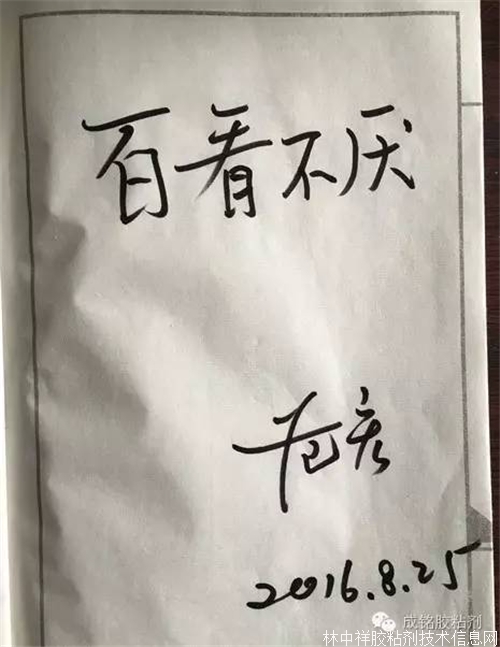 百看不厌
2016.8.25
成铭胶粘剂
林中祥胶粘剂技术信息网